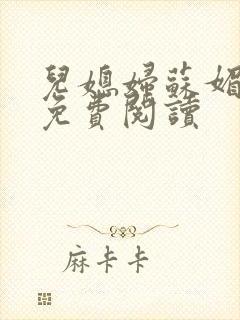 兒媳婦蘇媚
免費閱讀
麻卡卡